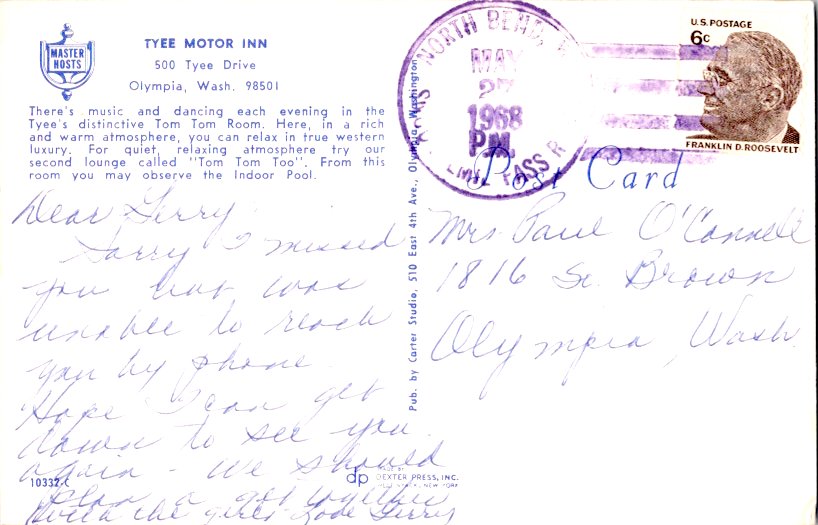 MASTER
HOSTS
TYEE MOTOR INN
500 Tyee Drive
Olympia, Wash. 98501
There's music and dancing each evening in the
Tyee's distinctive Tom Tom Room. Here, in a rich
and warm atmosphere, you can relax in true western
luxury. For quiet, relaxing atmosphere try our
second lounge called "Tom Tom Too". From this
room you may observe the Indoor Pool.
Dear Gerry
Sorry I missed
you but was
unable to reach
you by phone.
Hope I can get
down to see you
again - We should
plan a get together
the girls - Love Gerry
10332-C
Pub. by Carter Studio, 510 East 4th Ave., Olympia, Washington
dp
MADE BY
DEXTER PRESS, INC.
WEST NYACK, NEW YORK
NORTH BEND
MAY
27
1968
P.M.
PASS R
U.S. POSTAGE
6c
FRANKLIN D. ROOSEVELT
Post Card
Mrs. Paul O'Connell
1816 So. Brown
Olympia, Wash.